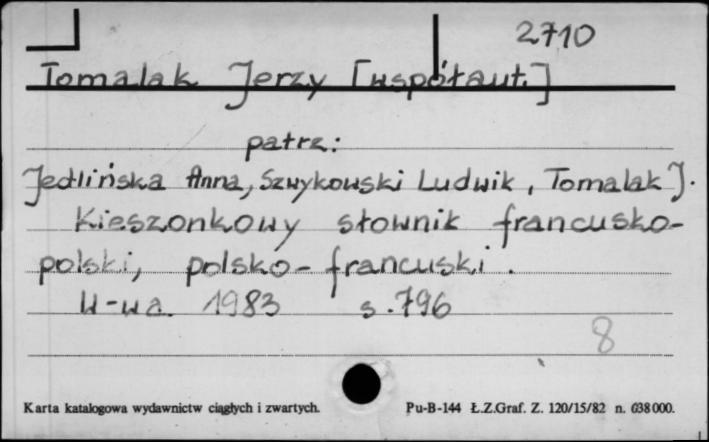 2710
Tomalak Jerzy [współaut.]
patrz:
Jedlińska Anna, Szwykowski Ludwik, Tomalak J.
Kieszonkowy słownik francusko-
polski, polsko-francuski.
W-wa. 1983 s. 796
8
Karta katalogowa wydawnictw ciągłych i zwartych. Pu-B-144 Ł.Z.Graf. Z. 120/15/82 n. 638000.